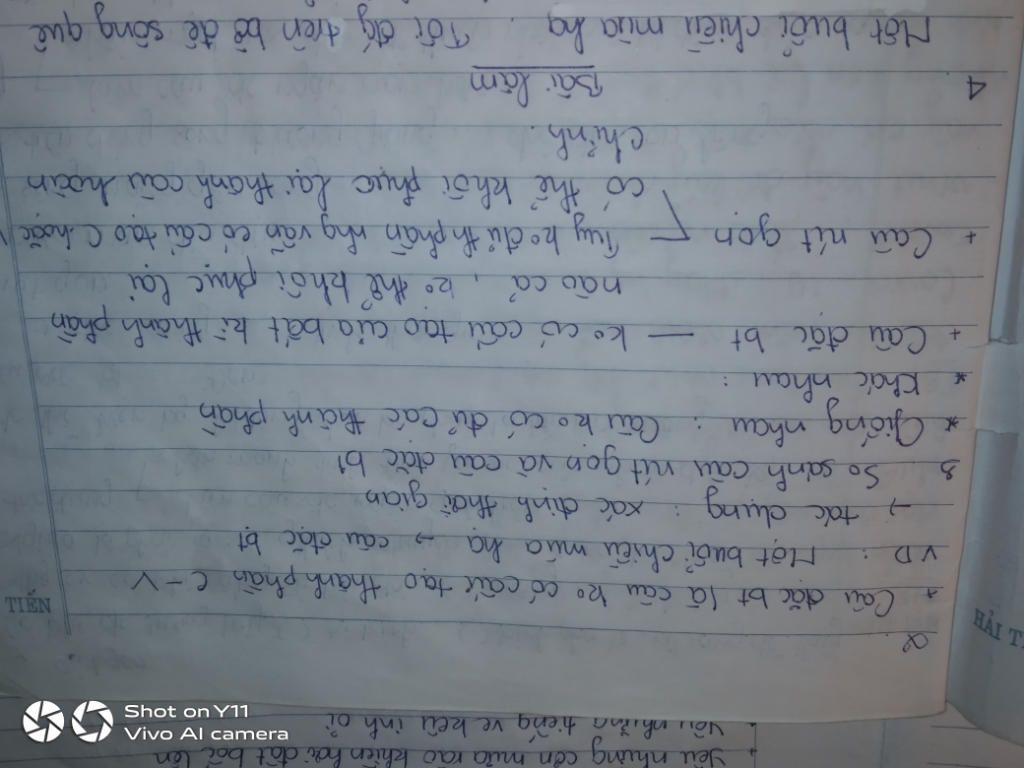 yêu những cơn mưa rào khiến hơi đất bốc lên
yêu những tiếng ve kêu inh ỏi
2.
* Câu đặc bt là câu ko có cấu tạo thành phần C - V
VD : Một buổi chiều mùa hạ → câu đặc bt
→ tác dụng : xác định thời gian
3 So sánh câu rút gọn và câu đặc bt
* Giống nhau : Câu ko có đủ các thành phần
* Khác nhau :
+ Câu đặc bt — ko có cấu tạo của bất kì thành phần
nào cả, ko thể khôi phục lại
+ Câu rút gọn — Tuy ko đủ th phần nhg vẫn có cấu tạo C hoặc V
có thể khôi phục lại thành câu hoàn
chỉnh.
4 Bài làm
Một buổi chiều mùa hạ. Tôi đi trên bờ đê sông quê
HẢI T
TIẾN
Shot on Y11
Vivo AI camera